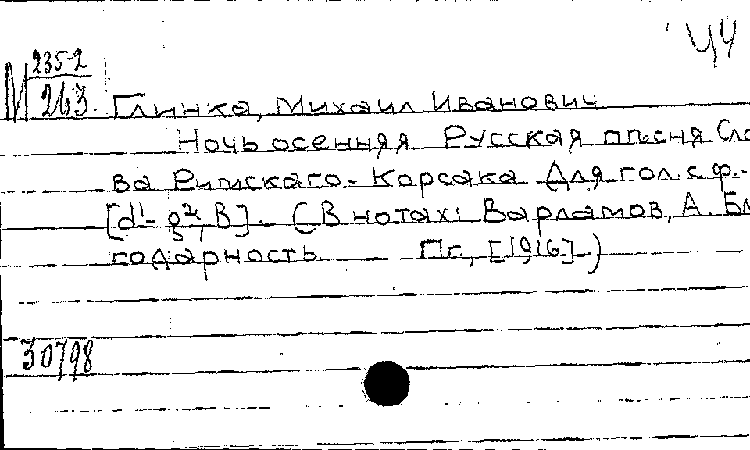 44
М 235-2
263.
Глинка, Михаил Иванович
Ночь осенняя Русская песня Сло
ва Римскаго-Корсака Для гол. с ф.-
[d¹-g², B]. (В нотах: Варламов, А. Бла
годарность Пг., [1916].)
30798